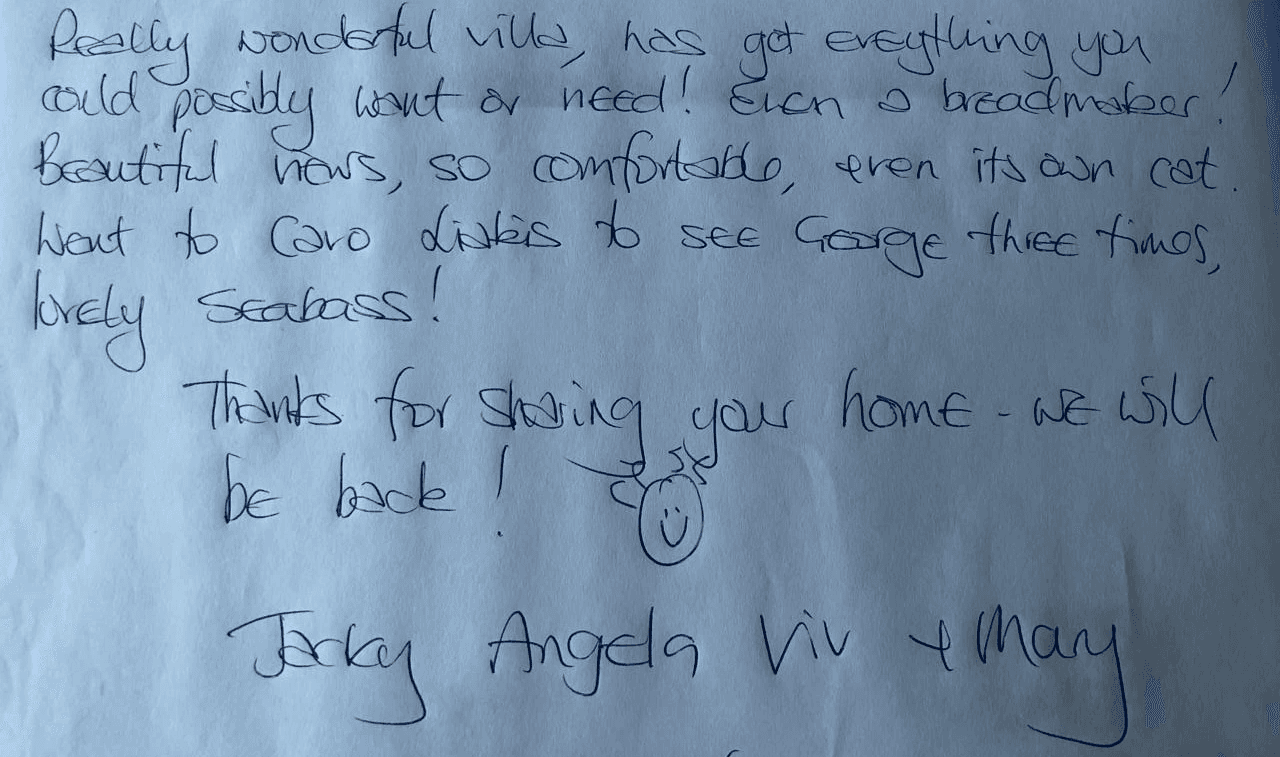 Really wonderful villa, has got eveything you
could possibly want or need! Even a breadmaker!
Beautiful views, so comfortable, even its own cat.
Went to Cavo diskis to see George three times,
lovely seabass!
Thanks for sharing your home - we will
be back!
Jacky Angela Viv + Mary